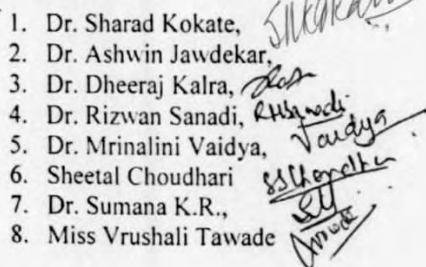 1. Dr. Sharad Kokate,
2. Dr. Ashwin Jawdekar,
3. Dr. Dheeraj Kalra,
4. Dr. Rizwan Sanadi, RHSanadi
5. Dr. Mrinalini Vaidya, Vaidya
6. Sheetal Choudhari
7. Dr. Sumana K.R.,
8. Miss Vrushali Tawade